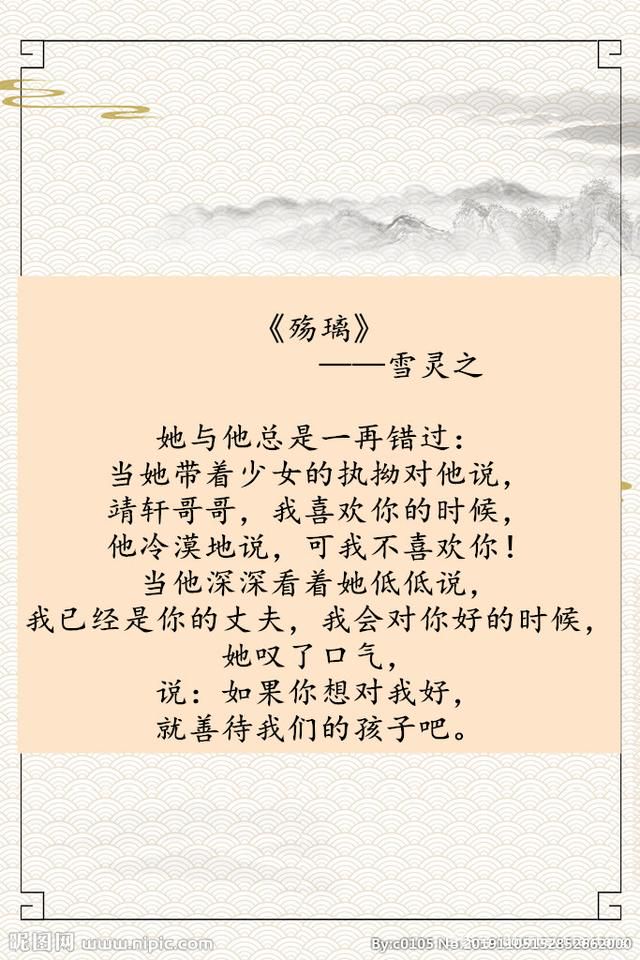 《殇璃》
——雪灵之
她与他总是一再错过：
当她带着少女的执拗对他说，
靖轩哥哥，我喜欢你的时候，
他冷漠地说，可我不喜欢你！
当他深深看着她低低说，
我已经是你的丈夫，我会对你好的时候，
她叹了口气，
说：如果你想对我好，
就善待我们的孩子吧。
昵图网 www.nipic.com
By:c0105 No:20191105152852662000